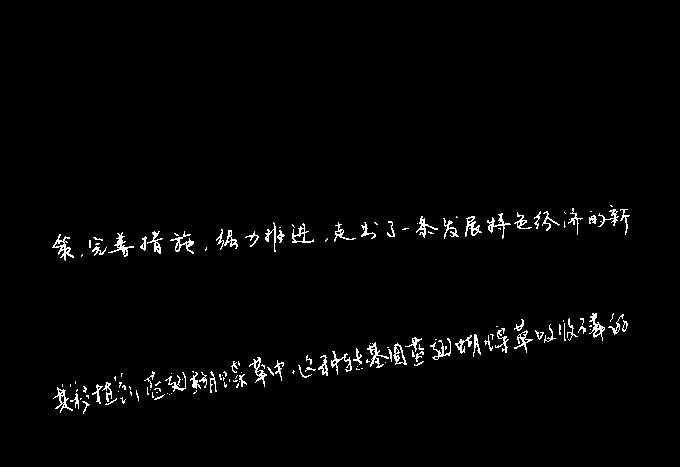 策,完善措施,强力推进,走出了一条发展特色经济的新
其移植到蓝猪蝴蝶草中,这种转基因蓝猪蝴蝶草吸收磷的